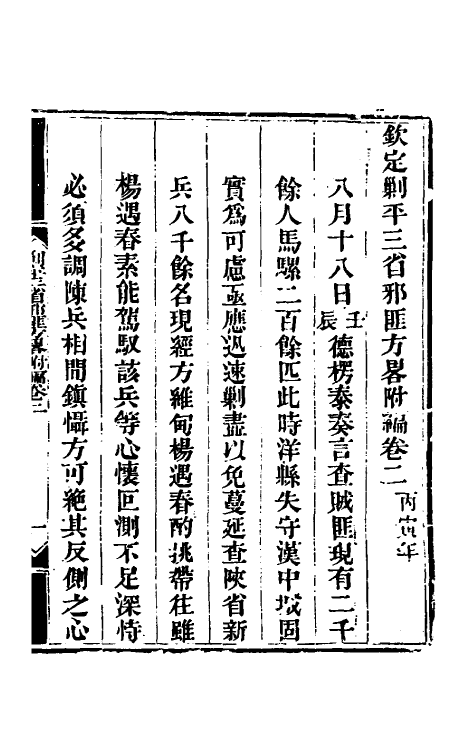 欽定剿平三省邪匪方畧附編卷二 丙寅年
八月十八日壬辰德楞泰奏言查賊匪現有二千
餘人馬騾二百餘匹此時洋縣失守漢中城固
實爲可慮亟應迅速剿盡以免蔓延查陝省新
兵八千餘名現經方維甸楊遇春酌挑帶往雖
楊遇春素能駕馭該兵等心懷叵測不足深恃
必須多調陳兵相間鎭懾方可絶其反側之心
剿平三省邪匪方畧附編卷二
一